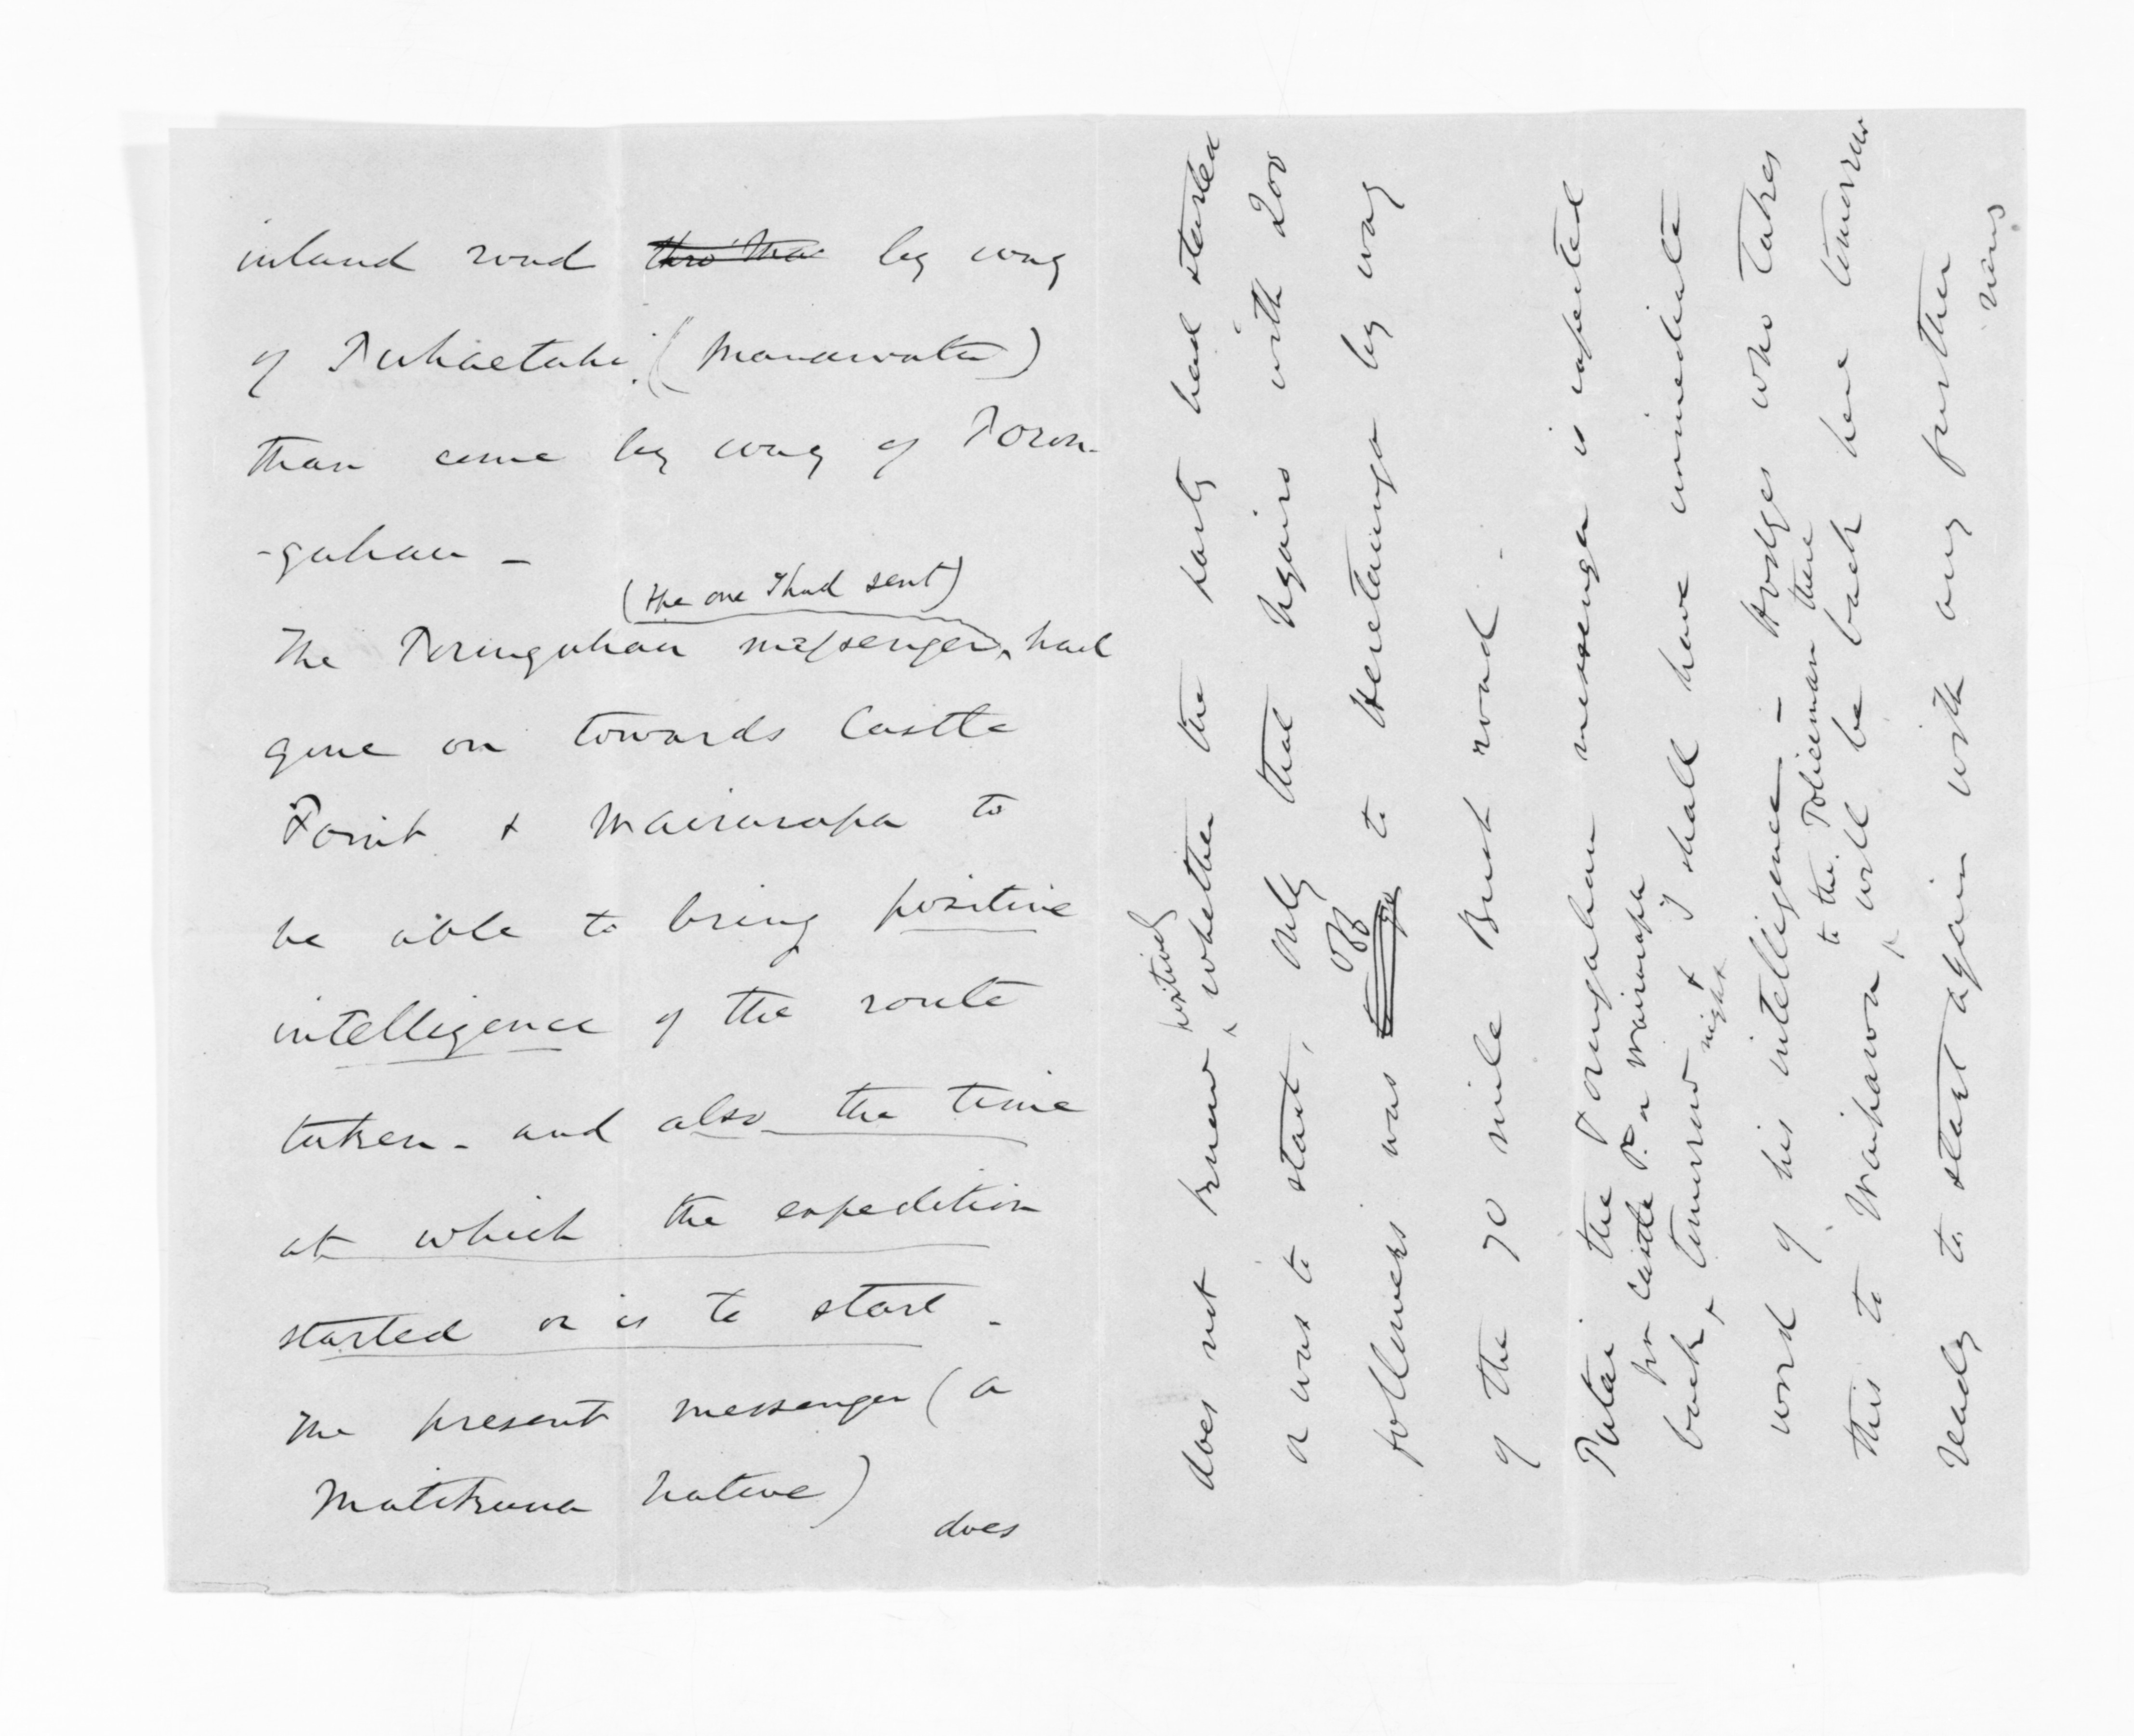 inland road thro' Ma by way
of Puhaetahi (Manawatu)
than come by way of Poron-
-gahau -
(the one I had sent)
The Porongahau messenger, had
gone on towards Castle
Point & Wairarapa to
be able to bring positive
intelligence of the route
taken - and also the time
at which the expedition
started or is to start -
The present messenger (a
Matikuna Native)
does
does not know positively whether the party had started
or was to start, only that Ngairo with 200
followers was to go off to Heretaunga by way
of the 70 mile Bush road -
Putai the Porongahau messenger is expected
fr Castle Pt or Wairarapa
back, & tomorrow night & I shall have immediate
word of his intelligence - Hodges who takes
to the Policeman there
this to Waipawa, will be back here tomorrow
ready to start again with any further
news